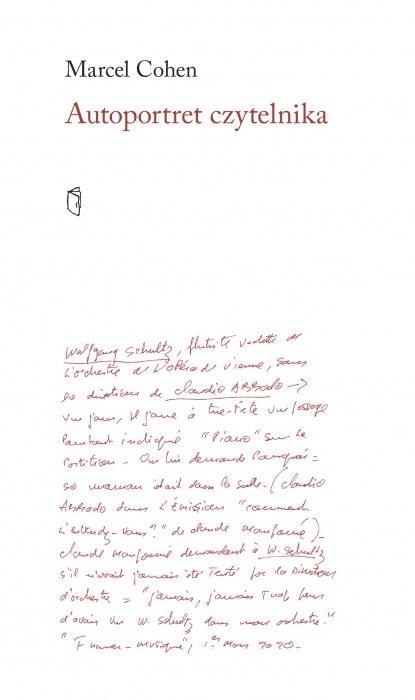 Marcel Cohen
Autoportret czytelnika
Wolfgang Schultz, flûtiste vedette de
L'orchestre de l'Opéra de Vienne, sous
la direction de Claudio ABBADO →
Un jour, il joue à tue-tête un passage
pourtant indiqué "Piano" sur la
Partition - On lui demande Pourquoi =
sa maman était dans la salle. (Claudio
ABBADO dans L'Émission "comment
L'entendez-vous?" de Claude Maupomé)-
Claude Maupomé demandant à W. Schultz
s'il n'avait jamais été Tenté par la Direction
d'orchestre = "jamais, jamais Trop heureux
d'avoir un W. Schultz dans mon orchestre."
"France-musique", 1er Mars 2020-